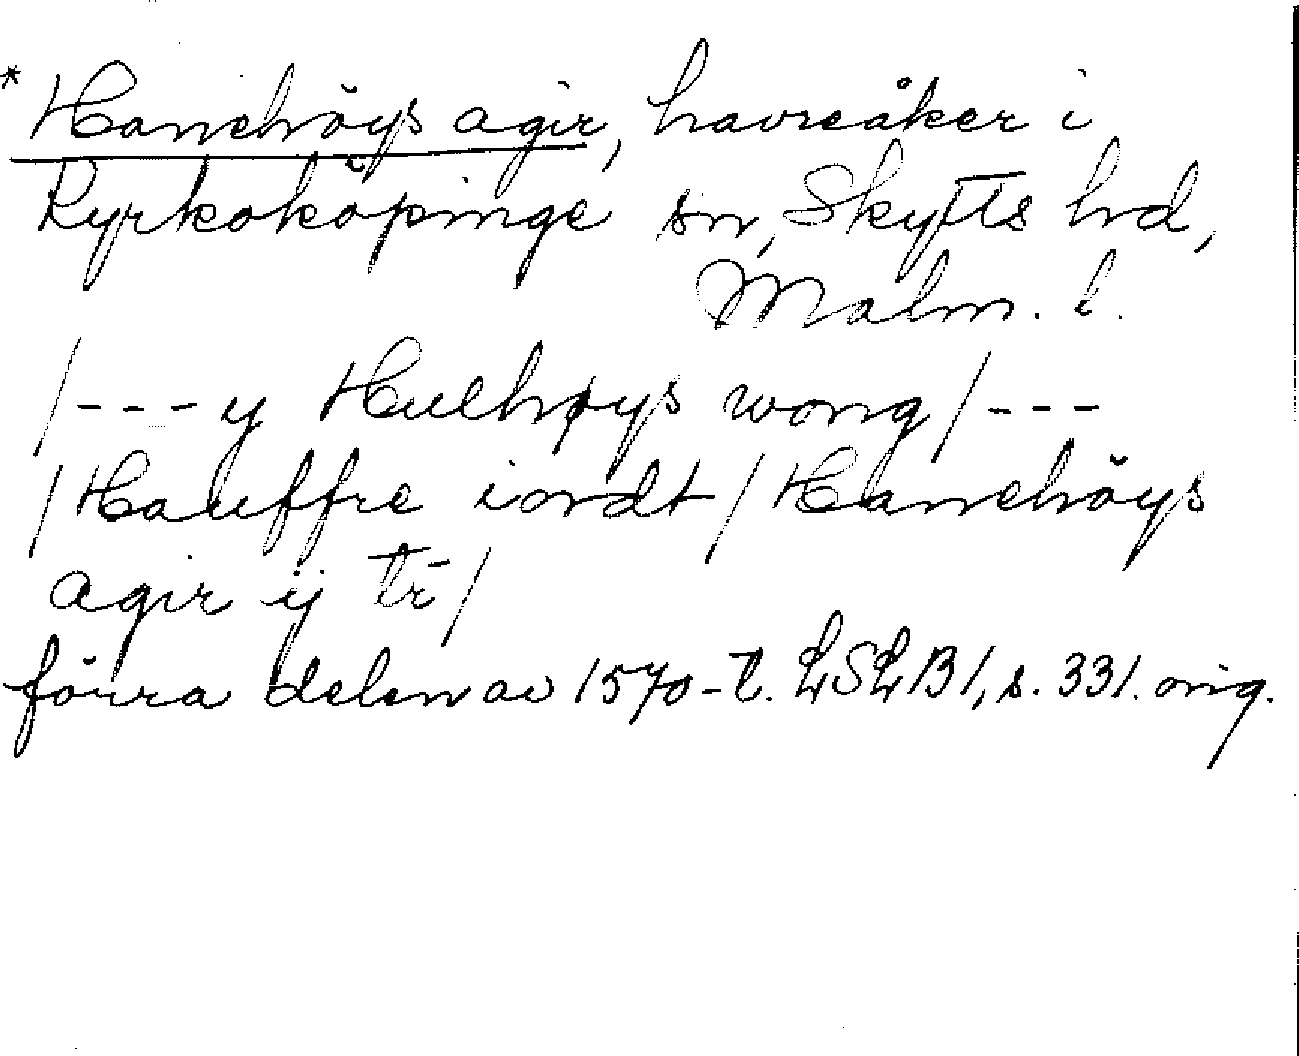 * Hanehöys agir, havreåker i
Kyrkoköpinge sn, Skytts hd,
Malm. l.
/---y Hulhøys wong/---
/Hauffre iordt/Hanehöys
agir ij tr̄/
förra delen av 1570-t. LSLB1, s. 331. orig.